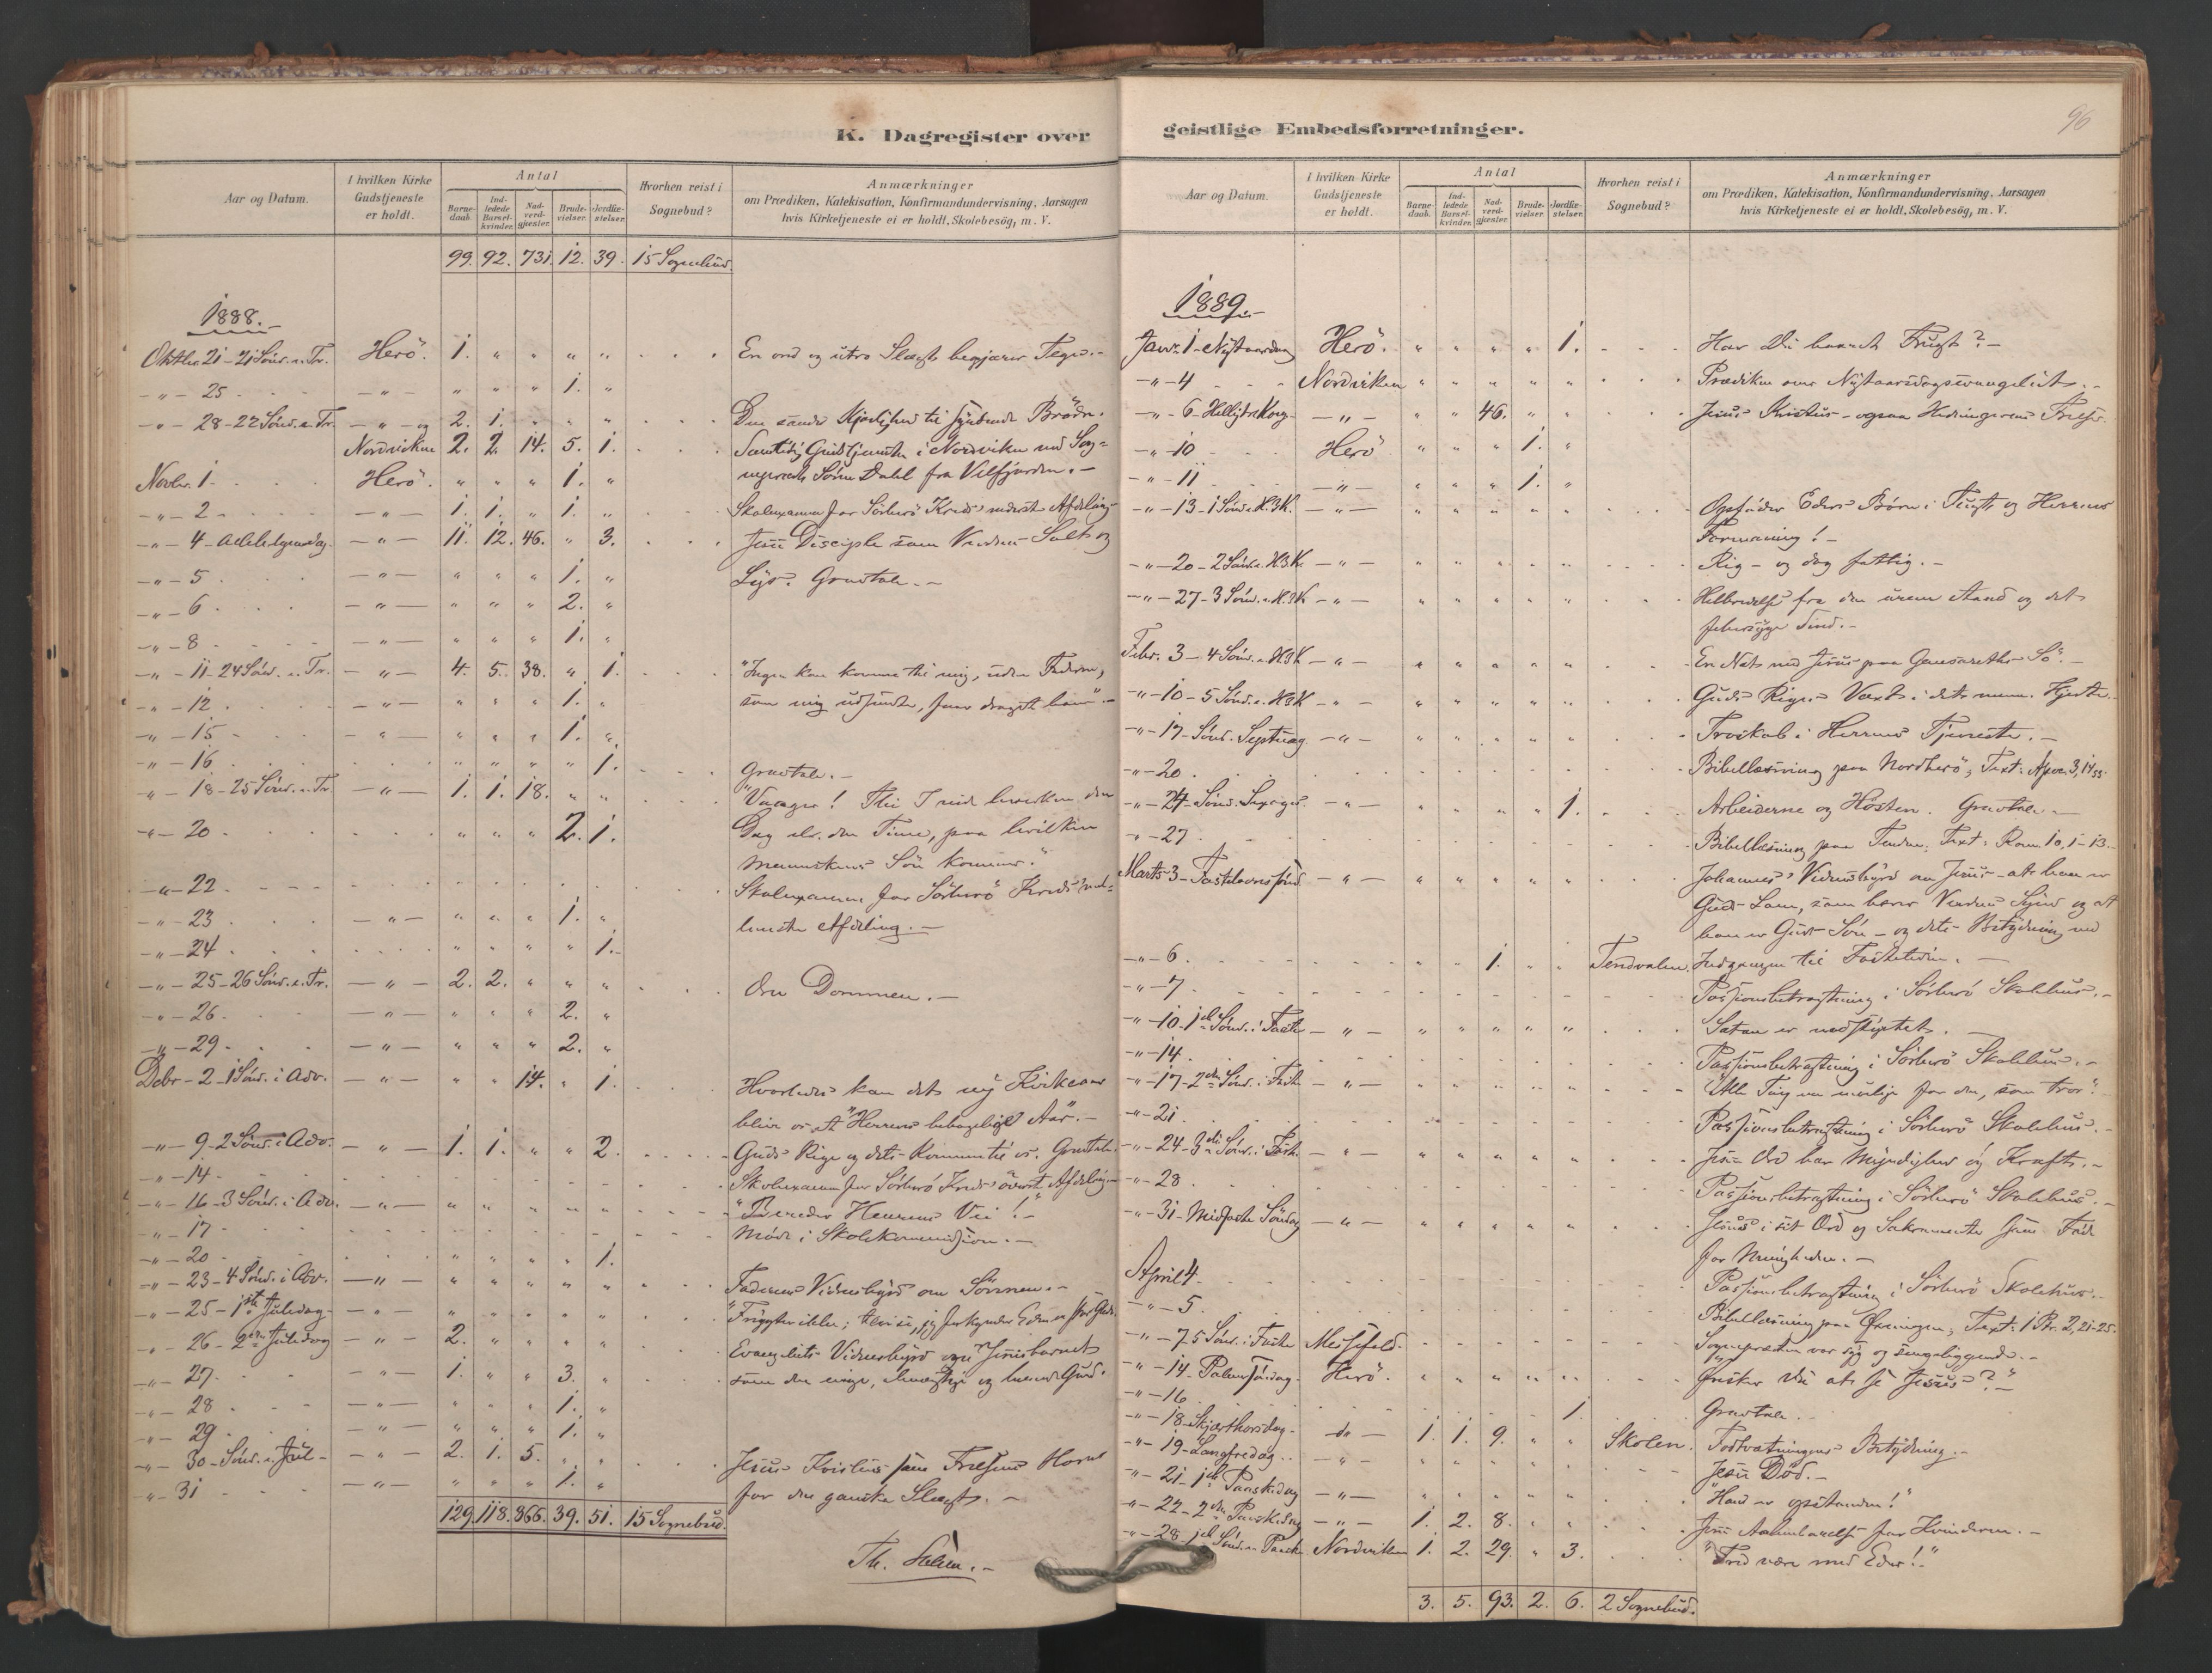 K. Dagregister over
Aar og Datum.
I hvilken Kirke Gudstjeneste er holdt.
Antal
Barnedaab.
Indledede Barselkvinder.
Nadverdgjæster.
Brudevielser.
Jordfæstelser.
Hvorhen reist i Sognebud?
Anmærkninger
om Prædiken, Katekisation, Konfirmandundervisning, Aarsagen
hvis Kirketjeneste ei er holdt, Skolebesög, m. V.
99. 92. 731. 12. 39. 15 Sognebud.
1888.
Oktbr. 21 - 21 Sönd. e. Tr. Herö. 1. " " " " En ond og utro Slægt begjærer Tegn.-
-"- 25 -"- " " " 1. "
-"- 28 - 22 Sönd. e. Tr. -"- og 2. 1. " " " Den sande Kjærlighed til syndende Brödre.
Nordviken 2. 2. 14. 5. 1. Samtidig Gudstjeneste i Nordviken ved Sog-
Novbr. 1. Herö. " " " 1. " nepræst Sören Dahl fra Velfjorden.-
-"- 2 -"- 1. 1. " 1. " Skolexamen for Sörherö Kreds' nederste Afdeling
-"- 4 - Allehelgensdag. -"- 11. 12. 46. " 3. Jesu Disciple som Verdens Salt og
-"- 5 -"- " " " 1. " Lys. Gravtale.-
-"- 6 -"- " " " 2. "
-"- 8 -"- " " " 1. "
-"- 11 - 24 Sönd. e. Tr. -"- 4. 5. 38. " 1. "Ingen kan komme til mig, uden Faderen,
-"- 12 -"- " " " 1. " som mig udsendte, faar draget ham".-
-"- 15 -"- " " " 1. "
-"- 16 " " " " 1. Gravtale.-
-"- 18 - 25 Sönd. e. Tr. -"- 1. 1. 18. " " "Vaager! Thi I vide hverken den
-"- 20 " " " 2. 1. Dag eller den Time, paa hvilken
Menneskens Sön kommer."
-"- 22 Skolexamen for Sörherö Kreds' mel-
-"- 23 -"- " " " 1. " lemste Afdeling.-
-"- 24 " " " " 1.
-"- 25 - 26 Sönd. e. Tr. -"- 2. 2. " " " Om Dommen.-
-"- 26 -"- " " " 2. "
-"- 29 -"- " " " 2. "
Debr - 2 - 1 Sönd. i Adv. -"- " " 14. " 1. Hvorledes kan det ny Kirkeaar
blive os et "Herrens behagelige Aar".-
-"- 9 - 2 Sönd. i Adv. -"- 1. 1. " " 2. Guds Rige og dets Komme til os. Gravtale.
-"- 14 Skolexamen for Sörherö Kreds' överst Afdeling.-
-"- 16 - 3 Sönd. i Adv. -"- " " " " " "Bereder Herrens Vei!"
-"- 17 Möde i Skolekommission.-
-"- 20 " " " " 1.
-"- 23 - 4 Sönd. i Adv. -"- " " " " " Faderens Vidnesbyrd om Sönnen.-
-"- 25 - 1ste Juledag -"- " " " " " "Frygter ikke; thi se, jeg forkynder Eder
-"- 26 - 2den Juledag -"- 2. " " " " Evangeliets Vidnesbyrd om Jesusbarnet
-"- 27. -"- 1. " " 3. " som den evige, almægtige og levende Gud.
-"- 28 -"- " " " 1. "
-"- 29 -"- " " " 1. "
-"- 30 - Sönd. e. Jul - -"- 2. 1. 5. " " Jesus Kristus som Frelsens Horn
-"- 31 -"- " " " 1. " for den ganske Slægt.-
129. 118. 866. 39. 51. 15 Sognebud.
geistlige Embedsforretninger.
96
Aar og Datum.
I hvilken Kirke Gudstjeneste er holdt.
Antal
Barnedaab.
Indledede Barselkvinder.
Nadverdgjæster.
Brudevielser.
Jordfæstelser.
Hvorhen reist i Sognebud?
Anmærkninger
om Prædiken, Katekisation, Konfirmandundervisning, Aarsagen
hvis Kirketjeneste ei er holdt, Skolebesög, m. V.
1889.
Janr. 1 - Nytaarsdag Herö. " " " " 1. Har Du baaret Frugt?-
-"- 4 Nordviken " " " " " Prædiken over Nytaarsdagsevangeliet.-
-"- 6 - Helligtrekong. -"- " " 46. " " Jesus Kristus - ogsaa Hedningernes Frelser.
-"- 10 Herö " " " 1. "
-"- 11 -"- " " " 1. "
-"- 13 - 1 Sönd. e. H3K. -"- " " " " " Opföder Eders Börn i Tugt og Herrens
Formaning!-
-"- 20 - 2 Sönd. e. H3K. -"- " " " " " Rig - og dog fattig.-
-"- 27 - 3 Sönd. e. H3K -"- " " " " " Helbredelse fra den urene Aand og det
febersyge Sind.-
Febr. 3 - 4 Sönd. e. H3K -"- " " " " " En Nat med Jesus paa Genesareths Sö.-
-"- 10 - 5 Sönd. e. H3K -"- " " " " " Guds Riges Vext i dets menn. Hjerte.
-"- 17 - Sönd. Septuag. -"- " " " " " Troskab i Herrens Tjeneste.-
-"- 20 Bibellæsning paa Nordherö; Text: Apoc. 3, 14 ss.
-"- 24 - Sönd. Sexages. -"- " " " " 1. Arbeiderne og Hösten. Gravtale.-
-"- 27 Bibellæsning paa Tenden; Text: Rom. 10, 1-13.-
Marts 3 - Fastelavnssönd. -"- " " " " " Johannes' Vidnesbyrd om Jesus - at han er
Guds Lam, som bærer Verdens Synd og at
han er Guds Sön - og dets Betydning ved
-"- 6 " " 1. " " Tendvalen. Indgangen til Fastetiden.-
-"- 7 Passionsbetragtning i Sörherö Skolehus.-
-"- 10 - 1ste Sönd. i Faste -"- " " " " " Satan er nedstyrtet.
-"- 14 Passionsbetragtning i Sörherö Skolehus.-
-"- 17 - 2den Sönd. i Faste -"- " " " " " "Alle Ting ere mulige for den, som tror".
-"- 21 Passionsbetragtning i Sörherö Skolehus.-
-"- 24 - 3die Sönd. i Faste -"- " " " " " Jesu Ord har Myndighed og Kraft.-
-"- 28 Passionsbetragtning i Sörherö Skolehus.-
-"- 31 - Midfaste Söndag -"- " " " " " Jesus i sit Ord og Sakramente som Föde
for Menigheden.-
April 4 Passionsbetragtning i Sörherö Skolehus.-
-"- 5 Bibellæsning paa Text: 1 Pt. 2, 21-25.
-"- 7 5 Sönd. i Faste Messefald. Sognepræsten var syg og sengeliggende.-
-"- 14 - Palmesöndag - Herö. " " " " " Önsker Du at se Jesus?-"
-"- 16 1. Gravtale.
-"- 18 - Skjærthorsdag - -"- 1. 1. 9. " " Skolen. Fodtvætningens Betydning.-
-"- 19 - Langfredag .. -"- " " " " " Jesu Död.-
-"- 21 - 1ste Paaskedag -"- " " " " " "Han er opstanden!"
-"- 22 - 2den Paaskedag -"- 1. 2. 8. " " Jesu Aabenbarelse for Kvinderne.-
-"- 28 1ste Sönd. e. Paaske Nordviken 1. 2. 29. " 3. "Fred være med Eder!-"
3. 5. 93. 2. 6. 2 Sognebud.